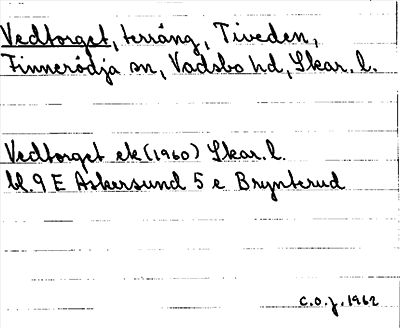 Vedtorget, terräng, Tiveden,
Finnerödja sn, Vadsbo hd, Skar. l.
Vedtorget ek (1960) Skar. l.
bl. 9 E Askersund 5 e Brynterud
C.O.J. 1962